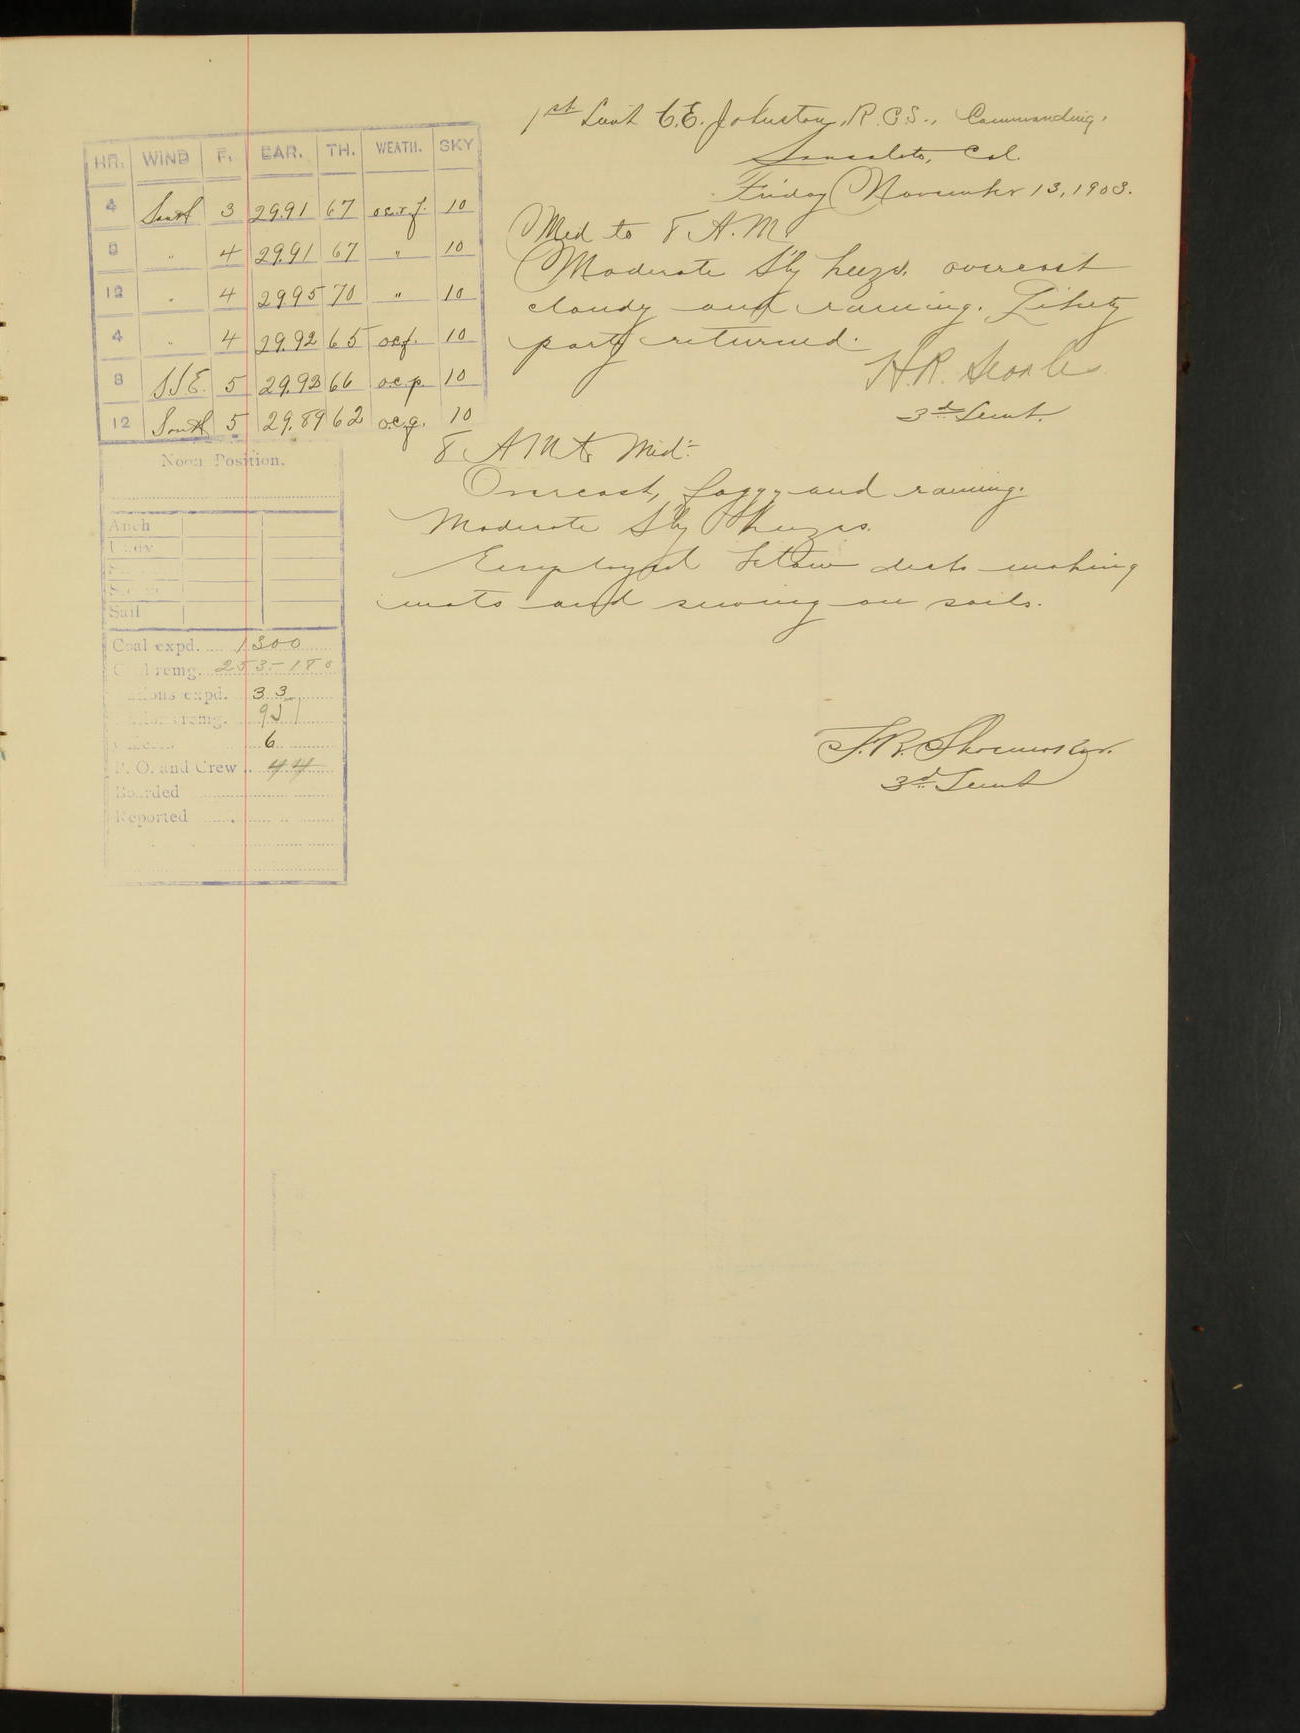 1st Lieut C.E. Johnston, R.C.S., Commanding.
Sausalito, Cal.
Friday November 13, 1903.
HR. WIND F. BAR. TH. WEATH. SKY
4 South 3 29.91 67 o.c.r.f. 10
8 " 4 29.91 67 " 10
12 " 4 29.95 70 " 10
4 " 4 29.92 65 o.c.f. 10
8 SSE. 5 29.93 66 o.c.p. 10
12 South 5 29.89 62 o.c.g. 10
Noon Position.
Anch
Sail
Coal expd. 1300
remg. 253-180
expd. 33
remg. 951
6
P. O. and Crew 44
Boarded
Reported
Mid to 8 A.M.
Moderate S'ly breeze. overcast
cloudy and raining. Liberty
party returned.
H.R. Searles
3d Lieut.
8 AM to Mid:
Overcast, foggy and raining.
Moderate S'ly breezes.
Employed below decks making
mats and sewing on sails.
3d Lieut